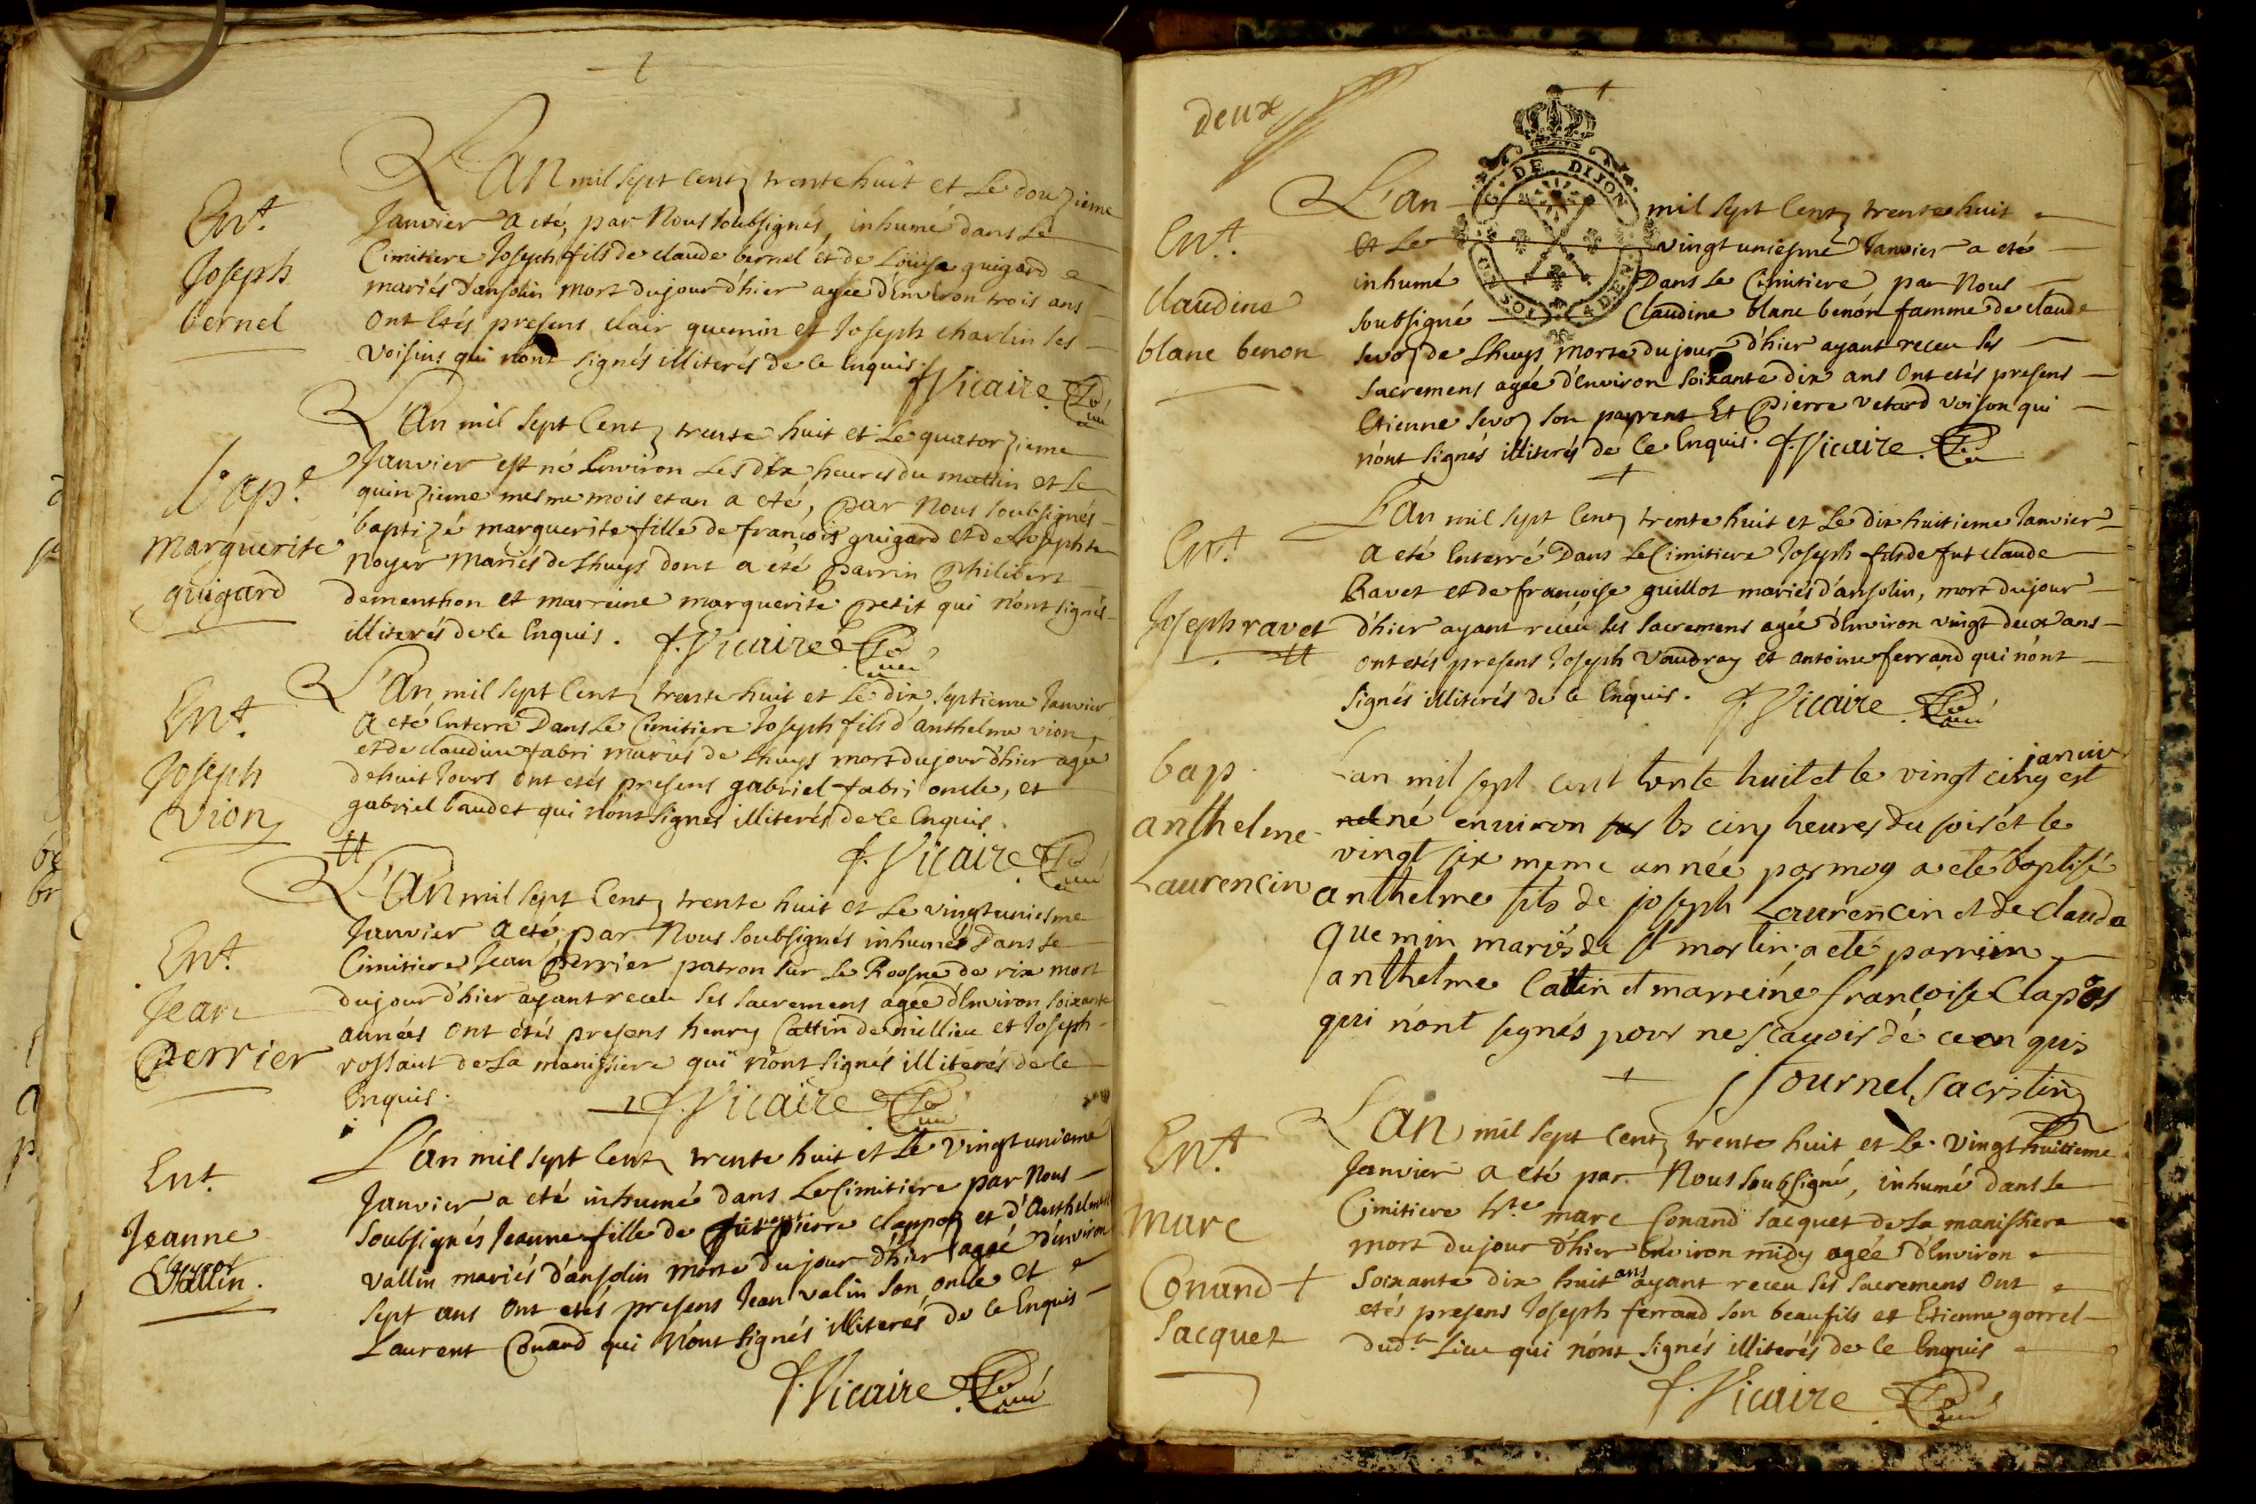 Ent.
Joseph
bernel
L'An mil sept Cent trente huit et Le douzieme
Janvier a eté, par Nous soubsignés, inhumé dans Le
Cimitiere Joseph fils de claude bernel et de Louise guigard
mariés d'ansolin mort du jour d'hier agée d'Environ trois ans
Ont Etés presens clair quemin et Joseph charlin ses
voisins qui n'ont signés illiterés de ce Enquis.
f. Vicaire Curé
Bap.e
Marguerite
guigard
L'An mil sept Cent trente huit et Le quatorzieme
Janvier est né Environ Les dix heures du mattin et Le
quinzieme mesme mois et an a eté, par Nous soubsignés
baptizé marguerite fille de françois guigard et de Josephte
Noyer Mariés de Lhuys dont a eté parrin Philibert
dementhon et marreine marguerite petit qui n'ont signés
illiterés de ce Enquis. f. Vicaire Curé
Ent.
Joseph
Vion
L'An mil sept Cent trente huit et Le dix septieme Janvier
a eté Enterré Dans Le Cimitiere Joseph fils d'anthelme vion
et de claudine fabri mariés de Lhuys mort du jour d'hier agée
de huit Jours ont etés presens gabriel fabri oncle, et
gabriel baudet qui n'ont signés illiterés de ce Enquis.
f. Vicaire Curé
Ent.
Jean
Perrier
L'An mil sept Cent trente huit et Le vingt uniesme
Janvier a eté, par Nous soubsignés inhumé Dans Le
Cimitiere Jean Perrier patron sur Le Roosne de rix mort
du jour d'hier ayant receu ses sacremens agée d'Environ soixante
années ont étés presens henry Cattin de millieu et Joseph
rossaut de La manissiere qui n'ont signés illiterés de ce
Enquis. f. Vicaire Curé
Ent.
Jeanne
Vallin.
L'An mil sept Cent trente huit et Le vingt unieme
Janvier a eté inhumé dans Le Cimitiere par Nous
soubsignés Jeanne fille de pierre clappoz et d'Anthelmette
vallin mariés d'ansolin morte du jour d'hier agée d'environ
sept ans ont etés presens Jean valin son oncle et
Laurent Conand qui n'ont signés illiterés de ce Enquis
f. Vicaire Curé
deux
G. DE DIJON
Ent.
Claudine
blanc benon
L'an mil sept Cent trente huit
et Le vingt uniesme Janvier a eté
inhumé Dans Le Cimitiere par Nous
soubsigné Claudine blanc benon famme de claude
sevoz de Lhuys Morte du jour d'hier ayant receu ses
sacremens agée d'Environ soixante dix ans Ont etés presens
Etienne sevoz son payrent Et Pierre vetard voison qui
n'ont signés illiterés de ce Enquis. f. Vicaire Curé
Ent.
Joseph ravet
L'an mil sept Cent trente huit et Le dix huitieme Janvier
a eté Enterré Dans Le Cimitiere Joseph fils de fut claude
Ravet et de françoise guillot mariés d'ansolin, mort du jour
d'hier ayant receu ses sacremens agée d'Environ vingt deux ans
ont etés presens Joseph Vaudray et antoine ferrand qui n'ont
signés illiterés de ce Enquis. f. Vicaire Curé
bap.
anthelme
Laurencin
L'an mil sept cent trente huit et le vingt cinq janvier est
né environ les cinq heures du soir et le
vingt six meme année par moy a eté baptisé
anthelme fils de joseph Laurencin et de clauda
quemin mariés de st martin a eté parrein
anthelme Catin et marreine françoise Clapos
qui n'ont segnés pour ne sçavoir de ce enquis
Journel, sacristin
Ent.
Marc
Conand
Jacquet
L'an mil sept Cent trente huit et Le vingt huitieme
Janvier a eté par Nous soubsigné, inhumé dans Le
Cimitiere marc Conand Jacquet de La manissiere
mort du jour d'hier Environ midy agée d'Environ
soixante dix huit ans ayant receu ses sacremens Ont
etés presens Joseph ferrand son beaufils et Etienne gorrel
dud.t Lieu qui n'ont signés illiterés de ce Enquis
f. Vicaire Curé